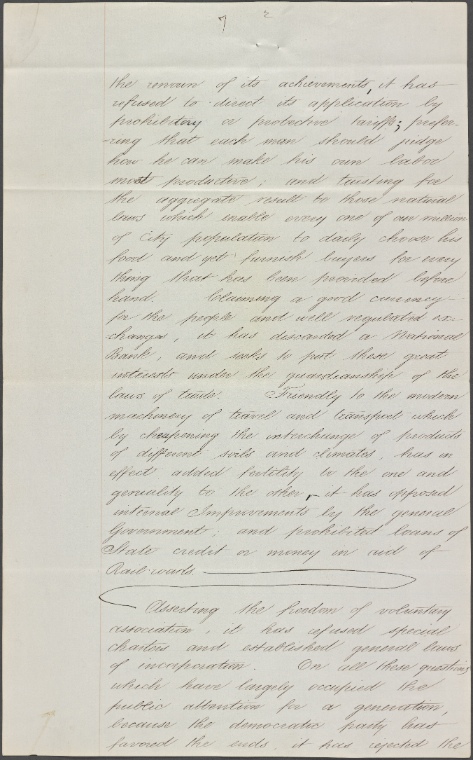 7 2
the renown of its achievements, it has
refused to direct its application by
prohibitory or protective tariffs; prefer-
-ring that each man should judge
how he can make his own labor
most productive; and trusting for
the aggregate result to those natural
laws which enable every one of our million
of City population to daily choose his
food and yet furnish buyers for every
thing that has been provided before
hand. Claiming a good currency
for the people and well regulated ex-
changes, it has discarded a National
Bank, and seeks to put these great
interests under the guardianship of the
laws of trade. Friendly to the modern
machinery of travel and transport which
by cheapening the interchange of products
of different soils and climates, has in
effect added fertility to the one and
geniality to the other, it has opposed
internal Improvements by the general
Government; and prohibited loans of
State credit or money in aid of
Rail-roads.
Asserting the freedom of voluntary
association, it has refused special
charters and established general laws
of incorporation. On all these questions
which have largely occupied the
public attention for a generation,
because the democratic party has
favored the ends, it has rejected the